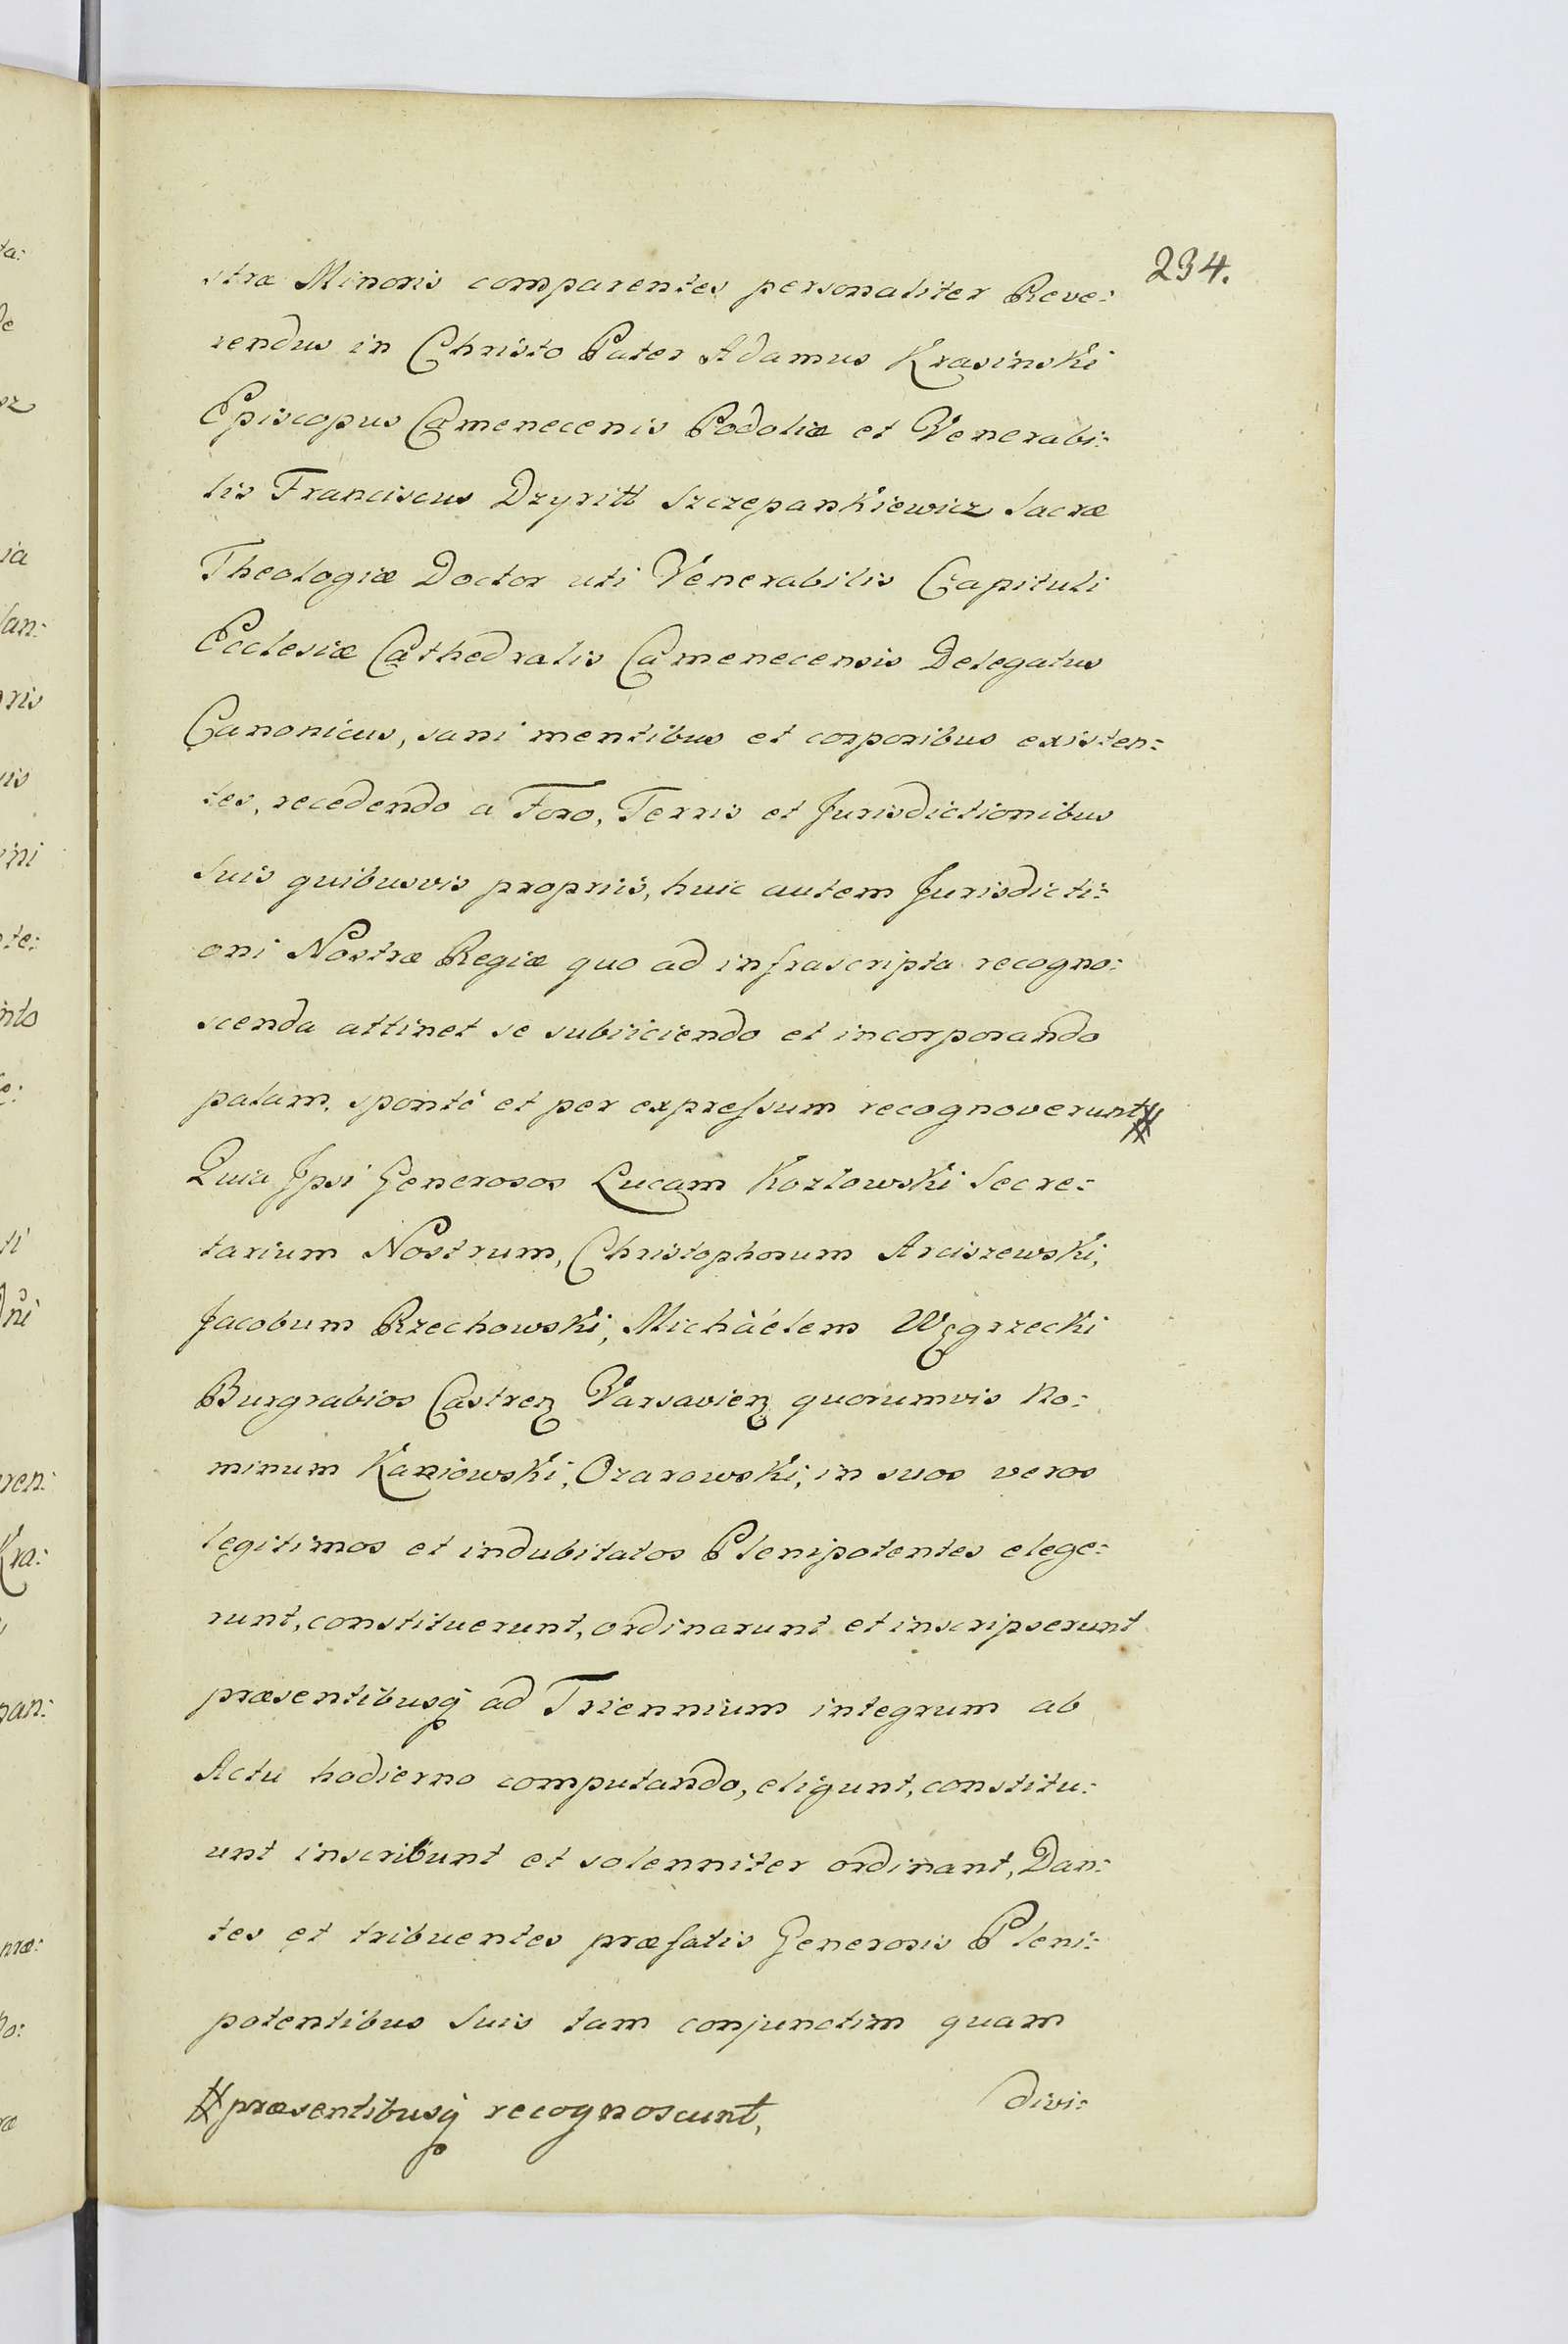 234.
stræ Minoris comparentes personaliter Reve:
rendus in Christo Pater Adamus Krasinski
Episcopus Camenecenis Podoliæ et Venerabi:
lis Franciscus Dzyritt Szczepankiewicz Sacræ
Theologiæ Doctor uti Venerabilis Capituli
Ecclesiæ Cathedralis Camenecensis Delegatus
Canonicus, sani mentibus et corporibus existen:
tes, recedendo a Foro, Terris et Jurisdictionibus
Suis quibusvis propriis, huic autem Jurisdicti:
oni Nostræ Regiæ quo ad infrascripta recogno:
scenda attinet se subiiciendo et incorporando
palam, sponté et per expressum recognoverunt #
Quia Jpsi Generosos Lucam Kozłowski Secre:
tarium Nostrum, Christophorum Arciszewski,
Jacobum Rzechowski, Michàélem Węgrzecki
Burgrabios Castreꝫ Varsavieꝫ quorumvis No:
minum Kaniowski, Ozarowski, in suos veros
legitimos et indubitatos Plenipotentes elege:
runt, constituerunt, ordinarunt et inscripserunt
præsentibusq̃ ad Triennium integrum ab
Actu hodierno computando, eligunt, constitu:
unt inscribunt et solenniter ordinant, Dan:
tes et tribuentes præfatis Generosis Pleni:
potentibus Suis tam conjunctim quam
divi:
# præsentibusq̃ recognoscunt,